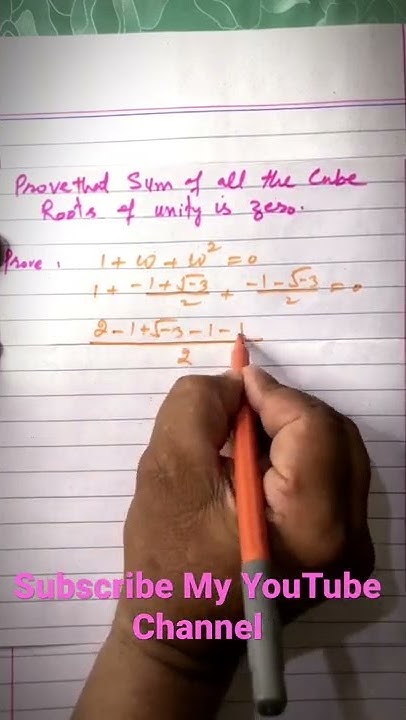 Prove that Sum of all the Cube
Roots of unity is zero.
Prove : 1 + ω + ω² = 0
1 + (-1 + √-3)/2 + (-1 - √-3)/2 = 0
(2 - 1 + √-3 - 1 - )/2
Subscribe My YouTube
Channel